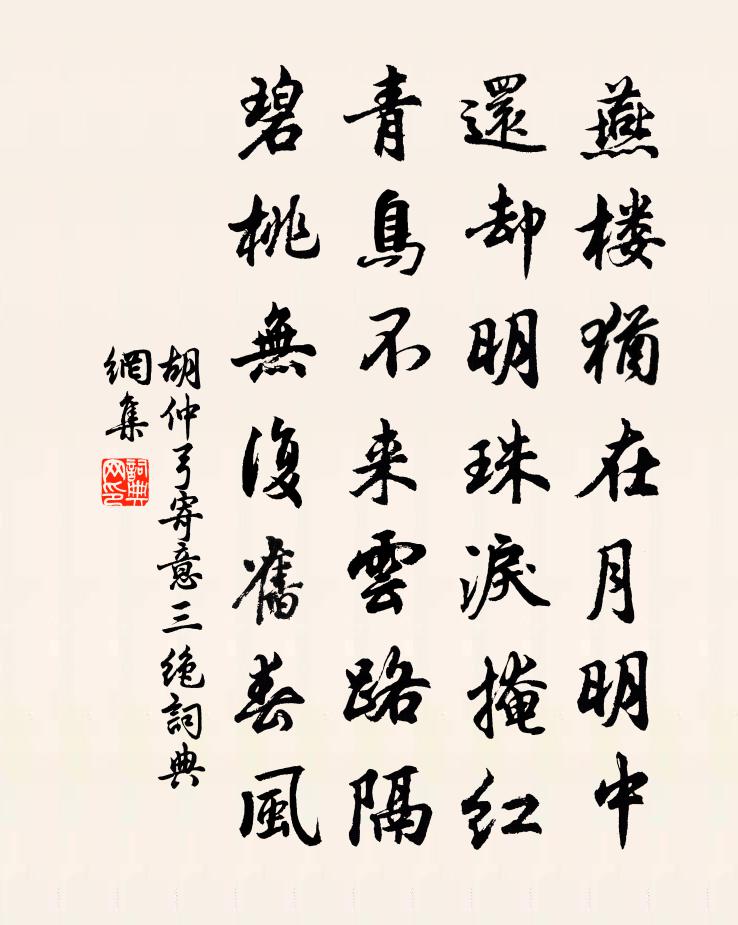 燕楼猶在月明中
還却明珠淚掩紅
青鳥不来雲路隔
碧桃無復舊春風
胡仲弓寄意三絶詞典
網集
詞典網印